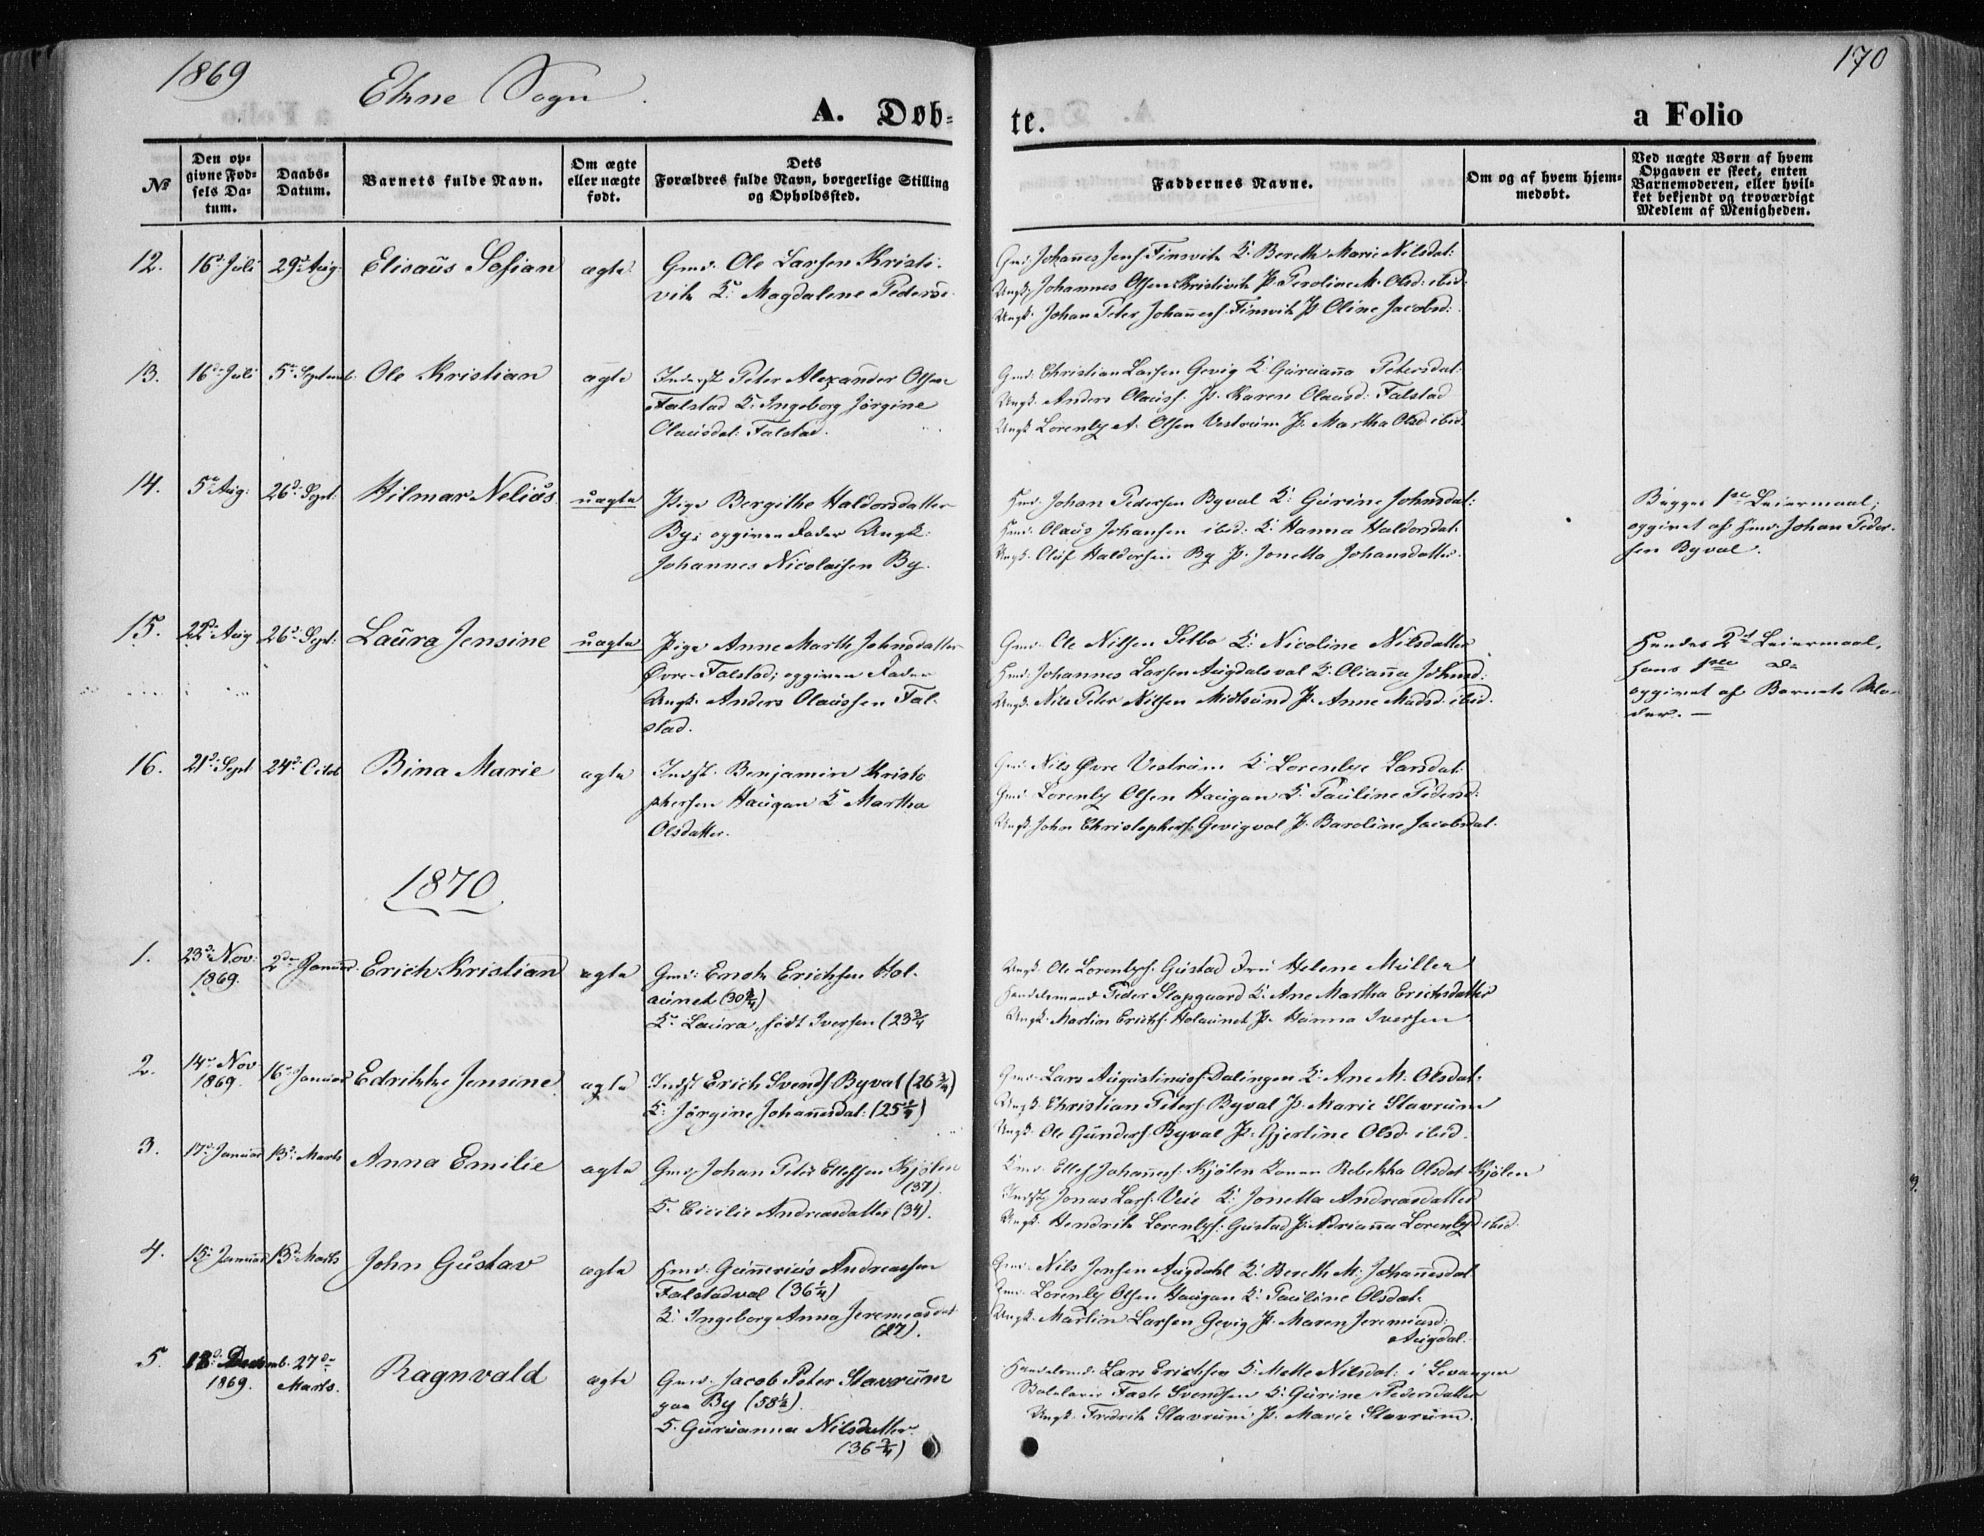 1869
Ekne Sogn.
A. Døb=
te.
a Folio
170
№
Den op=
givne Fød=
sels Da=
tum.
Daabs=
Datum.
Barnets fulde Navn.
Om ægte
eller uægte
født.
Dets
Forældres fulde Navn, borgerlige Stilling
og Opholdssted.
Faddernes Navne.
Om og af hvem hjem=
medøbt.
Ved uægte Børn af hvem
Opgaven er skeet, enten
Barnemoderen, eller hvil=
ket bekjendt og troværdigt
Medlem af Menigheden.
12. 16d Juli 29d Aug. Elisaüs Sofian ægte
Gmd. Ole Larsen Kristi-
vik K: Magdalene Pedersd.
Gmd. Johannes Jens. Finvik K: Bereth Marie Nilsdat:
Ungk. Johannes Olsen Kristivik P. Peroline M. Olsd: ibid.
Ungk. Johan Peter Johannes. Finvik P. Oline Jacobsd:
13. 16de Juli 5te Septemb: Ole Kristian ægte
Inderst Peter Alexander Olsen
Falstad K: Ingeborg Jørgine
Olausdat: Falstad.
Gmd. Christian Larsen Gevig K: Guruanna Petersdat:
Ungk. Anders Olauss. P. Karen Olausd. Falstad
Ungk. Lorents A. Olsen Vestrum P. Martha Olsd. ibid.
14. 5te Aug: 26d Sept: Hilmar Nelius uægte
Pige Bergithe Haldorsdatter
By; opgiven Fader Ungk:
Johannes Nicolaisen By.
Hmd. Johan Pedersen Byval K: Gurine Johnsdat:
Hmd. Olaus Johansen ibid. K: Hanna Haldorsdat:
Ungk. Oluf Haldorsen By P. Jonetta Johansdatter.
Begges 1ste Leiermaal;
opgivet af Hmd. Johan Peder-
sen Byval.
15. 22d Aug 26d Sept: Laura Jensine uægte
Pige Anne Marth Johnsdatter
Øvre-Falstad; opgiven Fader
Ungk. Anders Olaussen Fal-
stad.
Gmd. Ole Nilsen Selbo K: Nicoline Nilsdatter
Hmd. Johannes Larsen Augdalsval K: Olianna Johnsd:
Ungk. Nils Peter Nilsen Midtsund P. Anne Madsd. ibid.
Hendes 2d Leiermaal,
hans 1ste do
opgivet af Barnets Mo-
der. —
16. 21d Sept 24d Octob Bina Marie ægte
Indst. Benjamin Kristo
phersen Haugan K: Martha
Olsdatter.
Gmd. Nils Øvre Vestrum K: Lorentze Larsdat:
Gmd. Lorents Olsen Haugan K. Pauline Pedersd:
Ungk. John Christophers. Gevigval P. Baroline Jacobsdat.
1870
1. 23d Nov: 2den Januar. Erich Kristian ægte
1869.
Gmd: Enok Erichsen Hol-
aunet (30 3/4)
K: Laura, født Iversen (23 3/4
Ungk. Ole Lorents. Gustad Fru Helene Müller
Handelsmand Peder Slapgaard K. Ane Martha Erichsdatter
Ungk. Martin Erichs. Holaunet P. Hanna Iversen
2. 14d Nov 16d Januar Edrikke Jensine ægte
1869.
Indst Erich Svends. Byval (26 3/4)
K: Jørgine Johannesdat: (25 3/4)
Gmd. Lars Augustinus. Dalingen K: Ane M. Olsdat:
Ungk. Christian Peters. Byval P. Marie Slavrum
Ungk. Ole Gunders. Byval P. Gjertine Olsd. ibid.
3. 17d Januar 13d Marts Anna Emilie ægte
Gmd. Johan Peter Ellefsen Kjølen
(37).
K. Cicilie Andreasdatter (34).
Gmd. Ellef Johannes. Kjølen Konen Rebekka Olsdat. Kjølen
Indst. Jonas Lars. Veie K: Jonetta Andreasdatter
Ungk. Hendrik Lorents. Gustad P. Adrianna Lorentsd ibid.
4. 15d Januar 13d Marts John Gustav ægte
Hmd. Gunnerius Andreassen
Falstadval (36 1/4)
K: Ingeborg Anna Jeremiasdat
(27).
Gmd. Nils Jensen Augdahl K: Bereth M. Johannesdat
Gmd. Lorents Olsen Haugan K: Pauline Olsdat.
Ungk. Martin Larsen Gevig P. Maren Jeremiasd:
Augdal.
5. 18d Decemb. 27de Ragnvald ægte
1869. Marts.
Gmd. Jacob Peter Slavrum
paa By (58 1/2).
K. Guruanna Nilsdatter
(36 3/4)
Handelsmd: Lars Erichsen K: Mette Nilsdat: i Levanger
Faste Svendsen K: Gurine Pedersdatter
Ungk. Fredrik Slavrum P. Marie Slavrum.